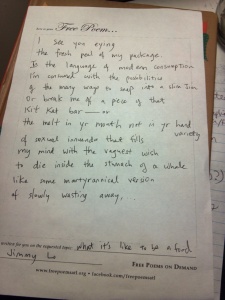 Free Poem...
I see you eying
the fresh peel of my package.
In the language of modern consumption
I'm consumed with the possibilities
of the many ways to snap into a slim Jim
Or break me of a piece of that
Kit Kat bar — or
the melt in yr mouth not in yr hand
variety
of sexual innuendo that fills
my mind with the vaguest wish
to die inside the stomach of a whale
like some martyrannical version
of slowly wasting away.
written for you on the requested topic: what it's like to be a food
Jimmy Lo
FREE POEMS ON DEMAND
www.freepoemsatl.org • facebook.com/freepoemsatl